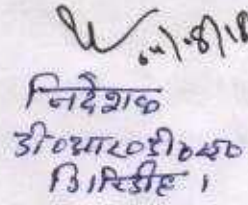 04/8/18
निदेशक
डी०आर०डी०ए०
गिरिडीह ।